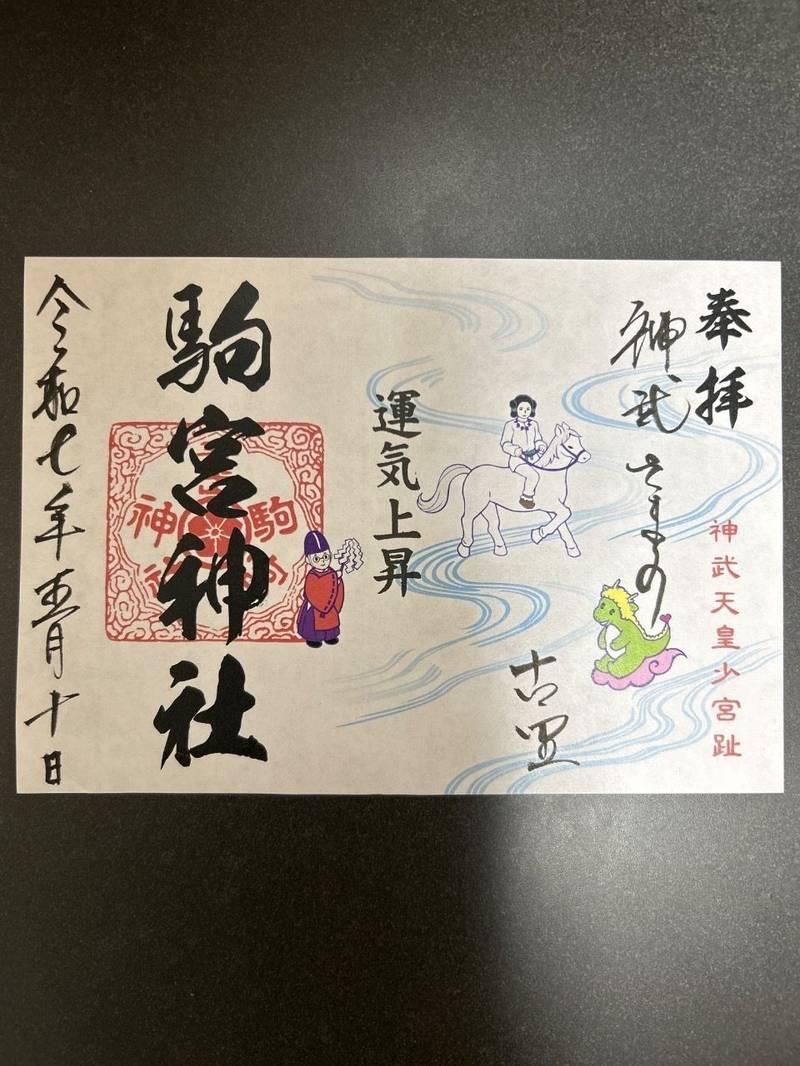 奉拝
神武天皇少宮趾
神武さまの
古里
運気上昇
駒宮神社
令和七年五月十日